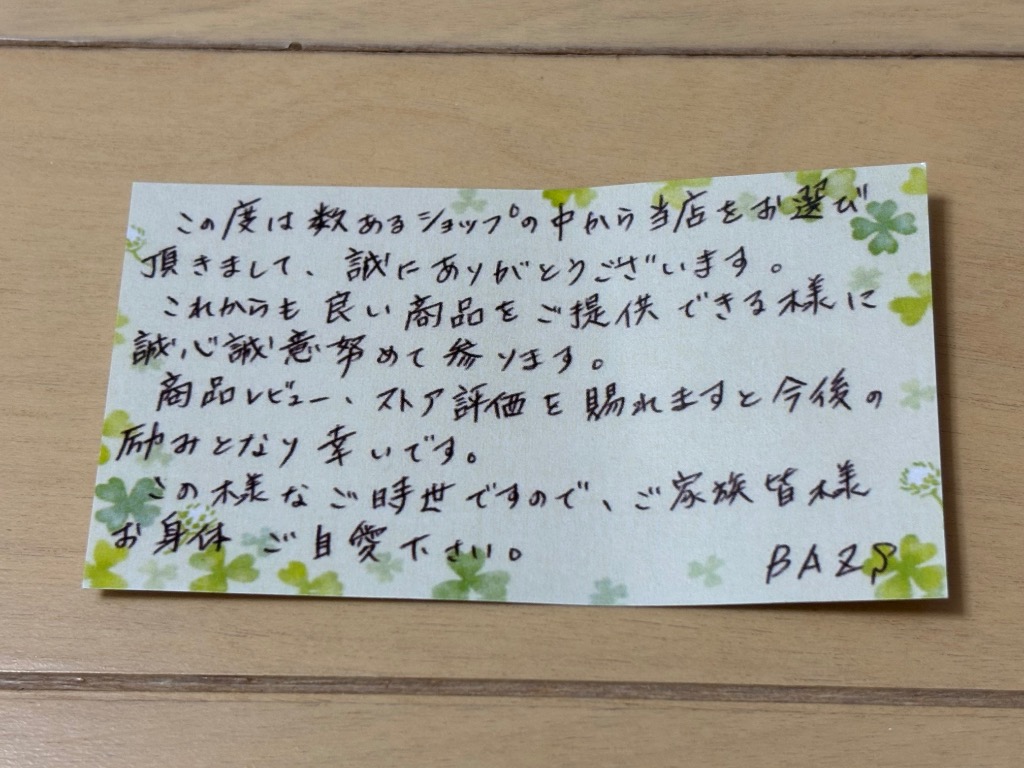 この度は数あるショップの中から当店をお選び
頂きまして、誠にありがとうございます。
これからも良い商品をご提供できる様に
誠心誠意努めて参ります。
商品レビュー、ストア評価を賜れますと今後の
励みとなり幸いです。
この様なご時世ですので、ご家族皆様
お身体ご自愛下さい。